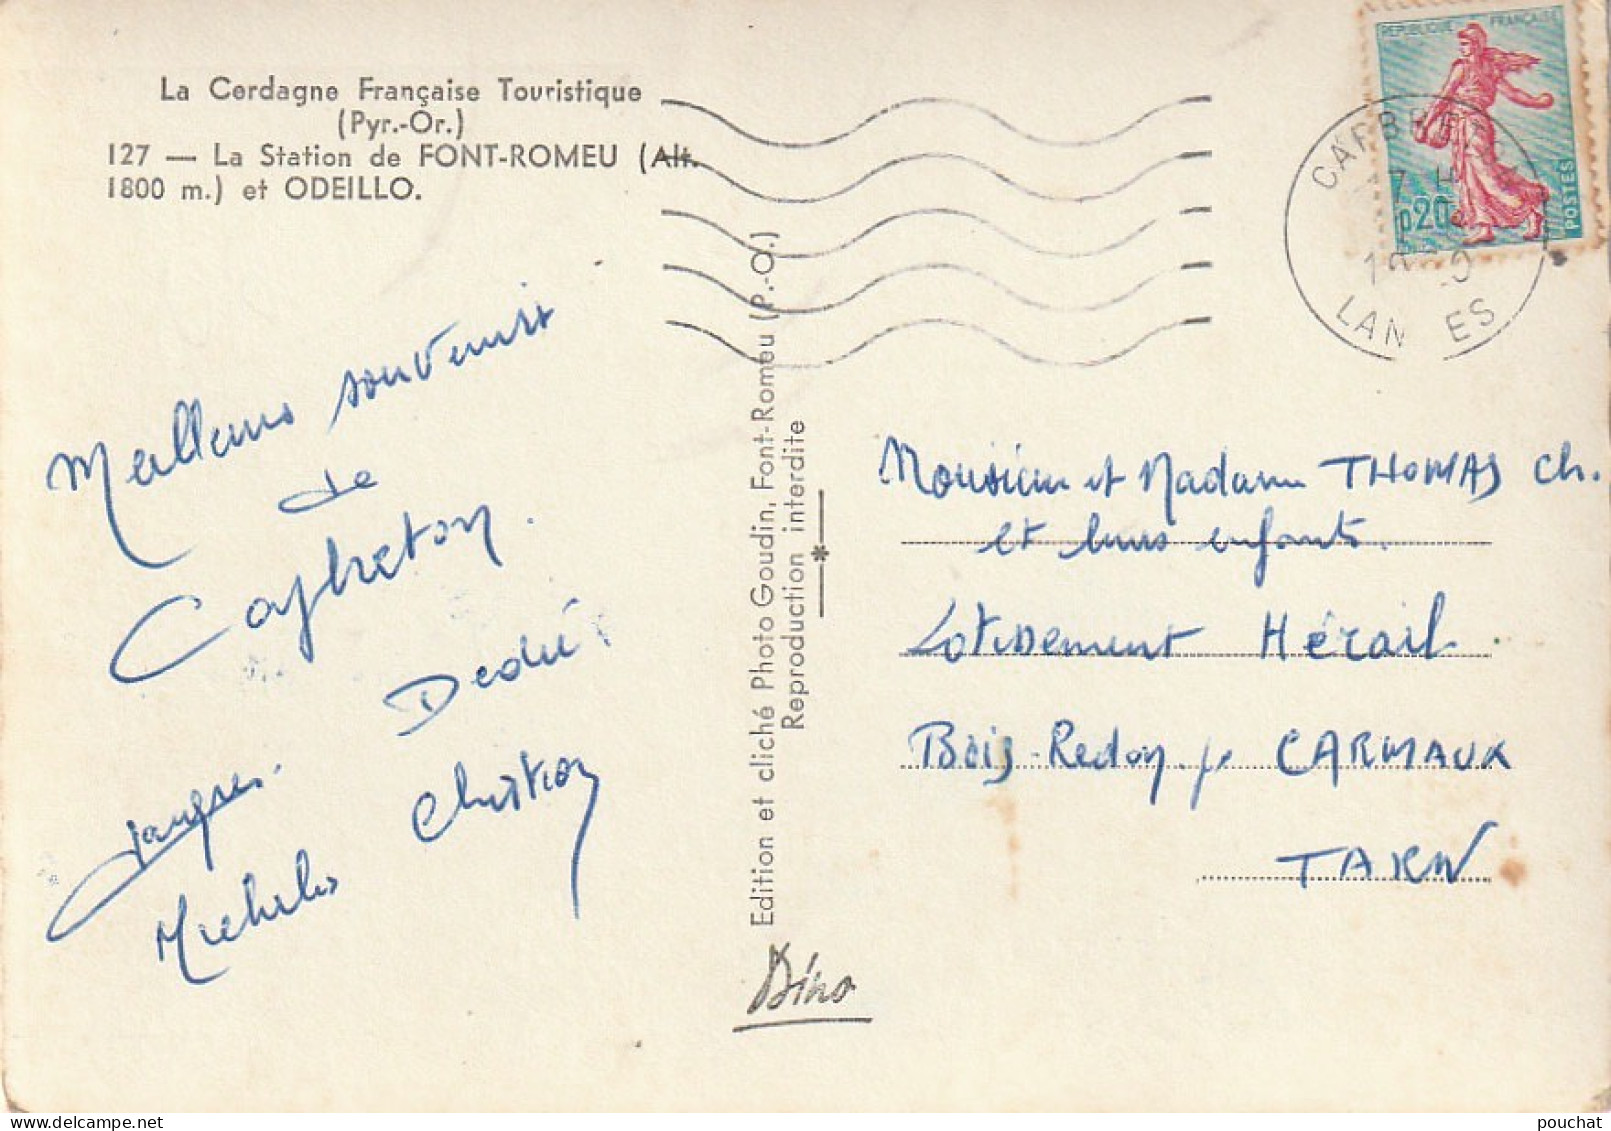 La Cerdagne Française Touristique
(Pyr.-Or.)
127 — La Station de FONT-ROMEU (Alt.
1800 m.) et ODEILLO.
REPUBLIQUE FRANÇAISE
0,20
POSTES
CAPBRETON
17 H
LANDES
Meilleurs souvenirs
de
Capbreton.
Dédé
Jacques.
Christian
Michel
Edition et cliché Photo Goudin, Font-Romeu (P.-O.)
Reproduction interdite
Dino
Monsieur et Madame THOMAS Ch.
et leurs enfants.
Lotissement Hérail
Bois-Redon p. CARMAUX
TARN
pouchat